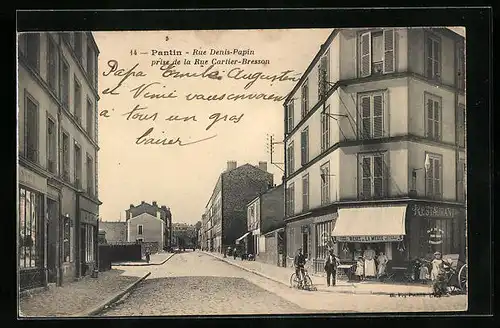 14 — Pantin — Rue Denis-Papin
prise de la Rue Cartier-Bresson
Papa Emilie Augustine
et Ninie vous envoient
à tous un gros
baiser
RESTAURANT